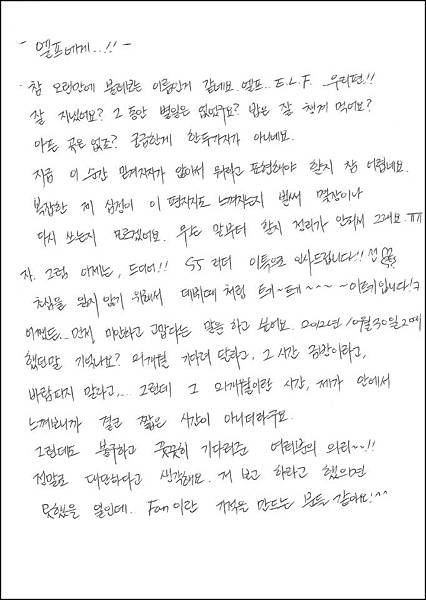 - 엘프에게...!! -
참 오랜만에 불러보는 이름인거 같네요. 엘프.. E.L.F. 우리편!!
잘 지냈어요? 그 동안 별일은 없었구요? 밥은 잘 챙겨 먹어요?
아픈 곳은 없죠? 궁금한게 한두가지가 아니네요.
지금 이 순간 믿겨지지가 않아서 뭐라고 표현해야 할지 참 어렵네요.
복잡한 제 심정이 이 편지지도 느껴지는지 벌써 몇장이나
다시 쓰는지 모르겠어요. 무슨 말부터 할지 정리가 안되서 그래요.ㅠㅠ
자. 그럼 이제는, 드디어!! SJ 리더 이특으로 인사드립니다!!
초심을 잃지 않기 위해서 데뷔때 처럼 트키~트키~~~~이특입니다!
어쨌든.. 먼저 미안하고 고맙다는 말을 하고 싶어요. 2012년 10월 30일 2때
했던말 기억나요? 21개월 기다려 달라고, 그 시간 금방이라고,
바람피지 말라고,... 그런데 그 21개월이란 시간, 제가 안에서
느껴보니까 결코 짧은 시간이 아니더라구요.
그런데도 불구하고 꿋꿋히 기다려준 여러분의 의리~~!!
정말로 대단하다고 생각해요. 저 보고 하라고 했으면
못했을 일인데. Fan이란 기적을 만드는 분들 같아요!^^